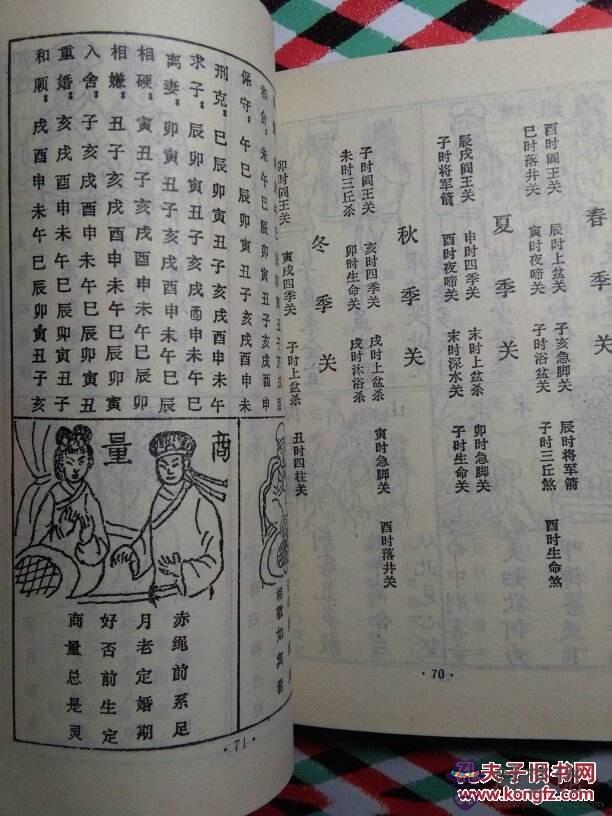 春季关
酉时阎王关 辰时上盆关 子亥急脚关 辰时将军箭 酉时生命煞
巳时落井关 寅时夜啼关 子时浴盆关 子时三丘煞
夏季关
辰戌阎王关 申时四季关 末时上盆关 卯时急脚关
子时将军箭 酉时夜啼关 末时深水关 子时生命关
秋季关
子时阎王关 亥时四季关 戌时上盆关 寅时急脚关 酉时落井关
未时三丘杀 卯时生命关 戌时沐浴杀
冬季关
卯时阎王关 寅戌四季关 子时上盆杀 丑时四柱关
·70·
未午巳辰卯寅丑子亥戌酉申
保守：午巳辰卯寅丑子亥戌酉申未
刑克：巳辰卯寅丑子亥戌酉申未午
求子：辰卯寅丑子亥戌酉申未午巳
离妻：卯寅丑子亥戌酉申未午巳辰
相硬：寅丑子亥戌酉申未午巳辰卯
相嫌：丑子亥戌酉申未午巳辰卯寅
入舍：子亥戌酉申未午巳辰卯寅丑
重婚：亥戌酉申未午巳辰卯寅丑子
和顺：戌酉申未午巳辰卯寅丑子亥
商量
赤绳前系足
月老定婚期
好否前生定
商量总是灵
·71·
孔夫子旧书网
www.kongfz.com